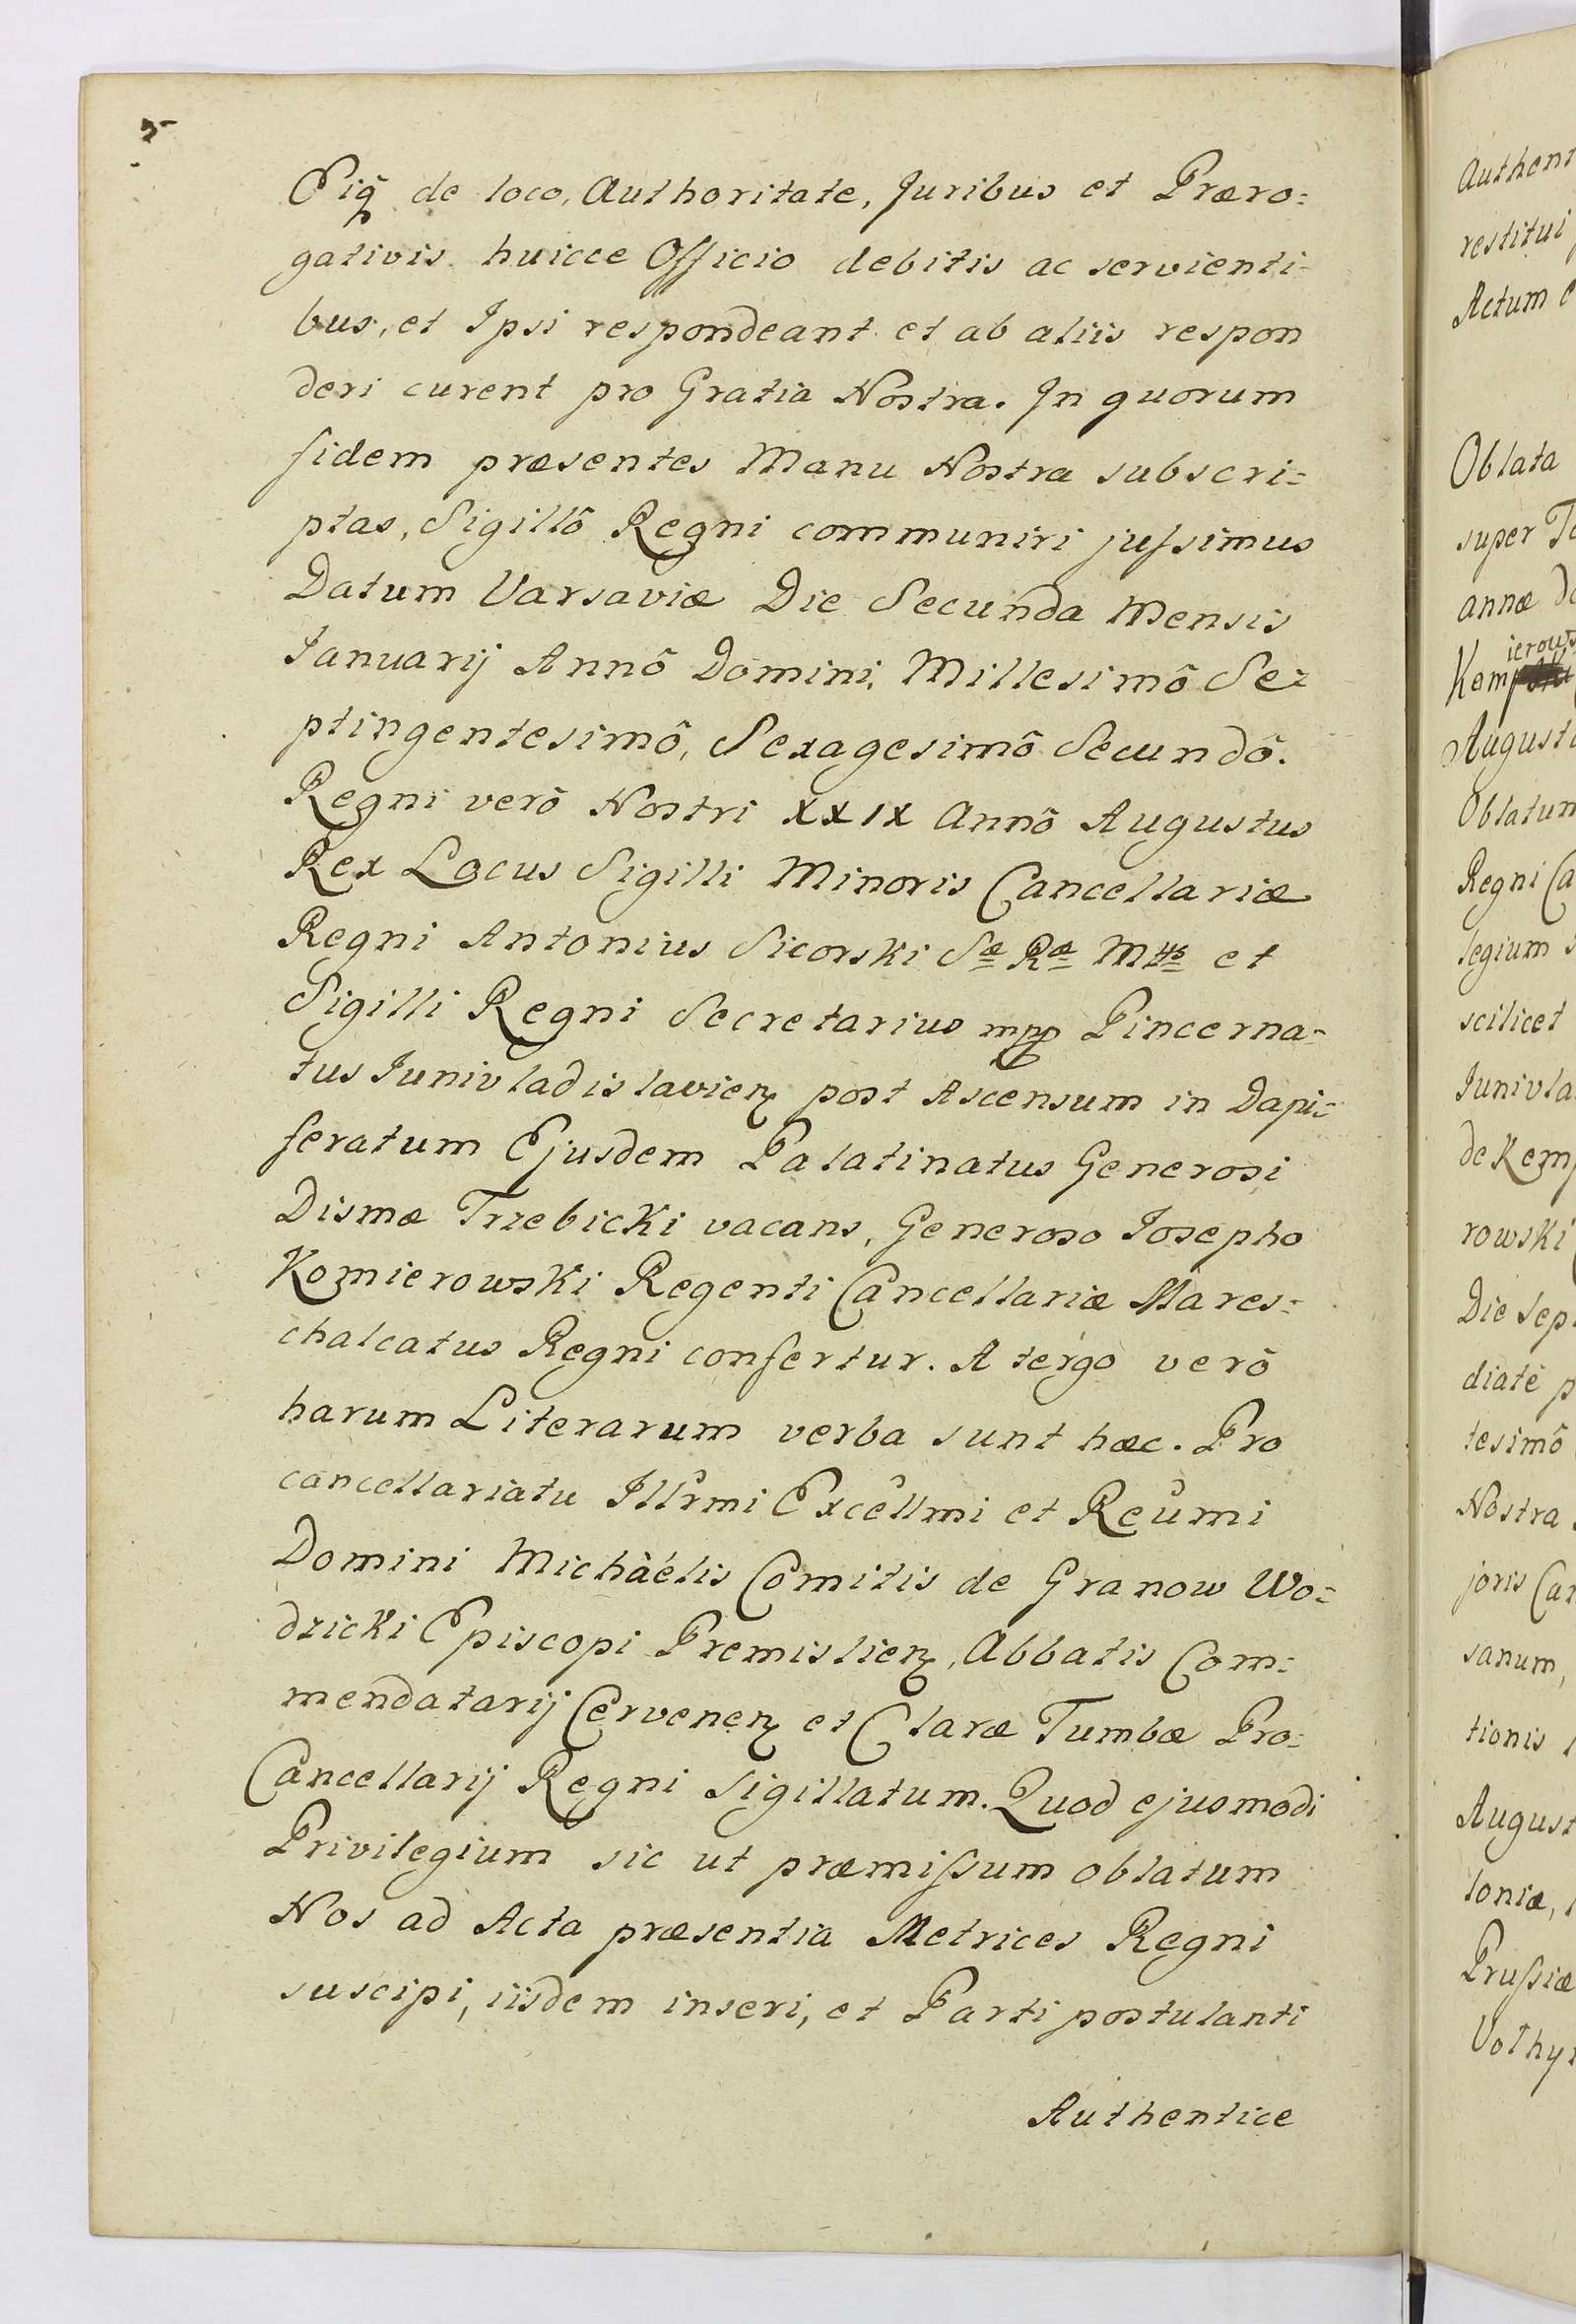 Eiq̃ de loco, Authoritate, Juribus et Præro=
gativis huicce Officio debitis ac servienti=
bus, et Ipsi respondeant et ab aliis respon
deri curent pro Gratia Nostra. In quorum
fidem præsentes Manu Nostra subscri=
ptas, Sigillô Regni communiri jußimus
Datum Varsaviæ Die Secunda Mensis
Januarij Annô Domini, Millesimô Se=
ptingentesimô, Sexagesimô Secundô.
Regni verô Nostri XXIX Annô Augustus
Rex Locus Sigilli Minoris Cancellariæ
Regni Antonius Sicorski Sæ Ræ Mttis et
Sigilli Regni Secretarius mpp Pincerna=
tus Junivladislavien̄ post Ascensum in Dapi=
feratum Ejusdem Palatinatus Generosi
Dismæ Trzebicki vacans, Generoso Josepho
Komierowski Regenti Cancellariæ Mares=
chalcatus Regni confertur. A tergo verô
harum Literarum verba sunt hæc. Pro
cancellariatu Illr̂mi Excêllmi et Reûmi
Domini Michàélis Comitis de Granow Wo=
dzicki Episcopi Premislien̄, Abbatis Com=
mendatarij Cervenen̄ et Claræ Tumbæ Pro=
Cancellarij Regni Sigillatum. Quod ejusmodi
Privilegium sic ut præmißum oblatum
Nos ad Acta præsentia Metrices Regni
suscipi, iisdem inseri, et Parti postulanti
Authentice
Authent
restitui
Actum
Oblata
super
annæ
ierows
Kem
August
Oblatum
Regni Ca
legium
scilicet
Junivla
de Kem
rowski
Die Sep
diatè p
tesimô
Nostra
joris Can
sanum,
tionis
August
loniæ,
Prußiæ
Volhy